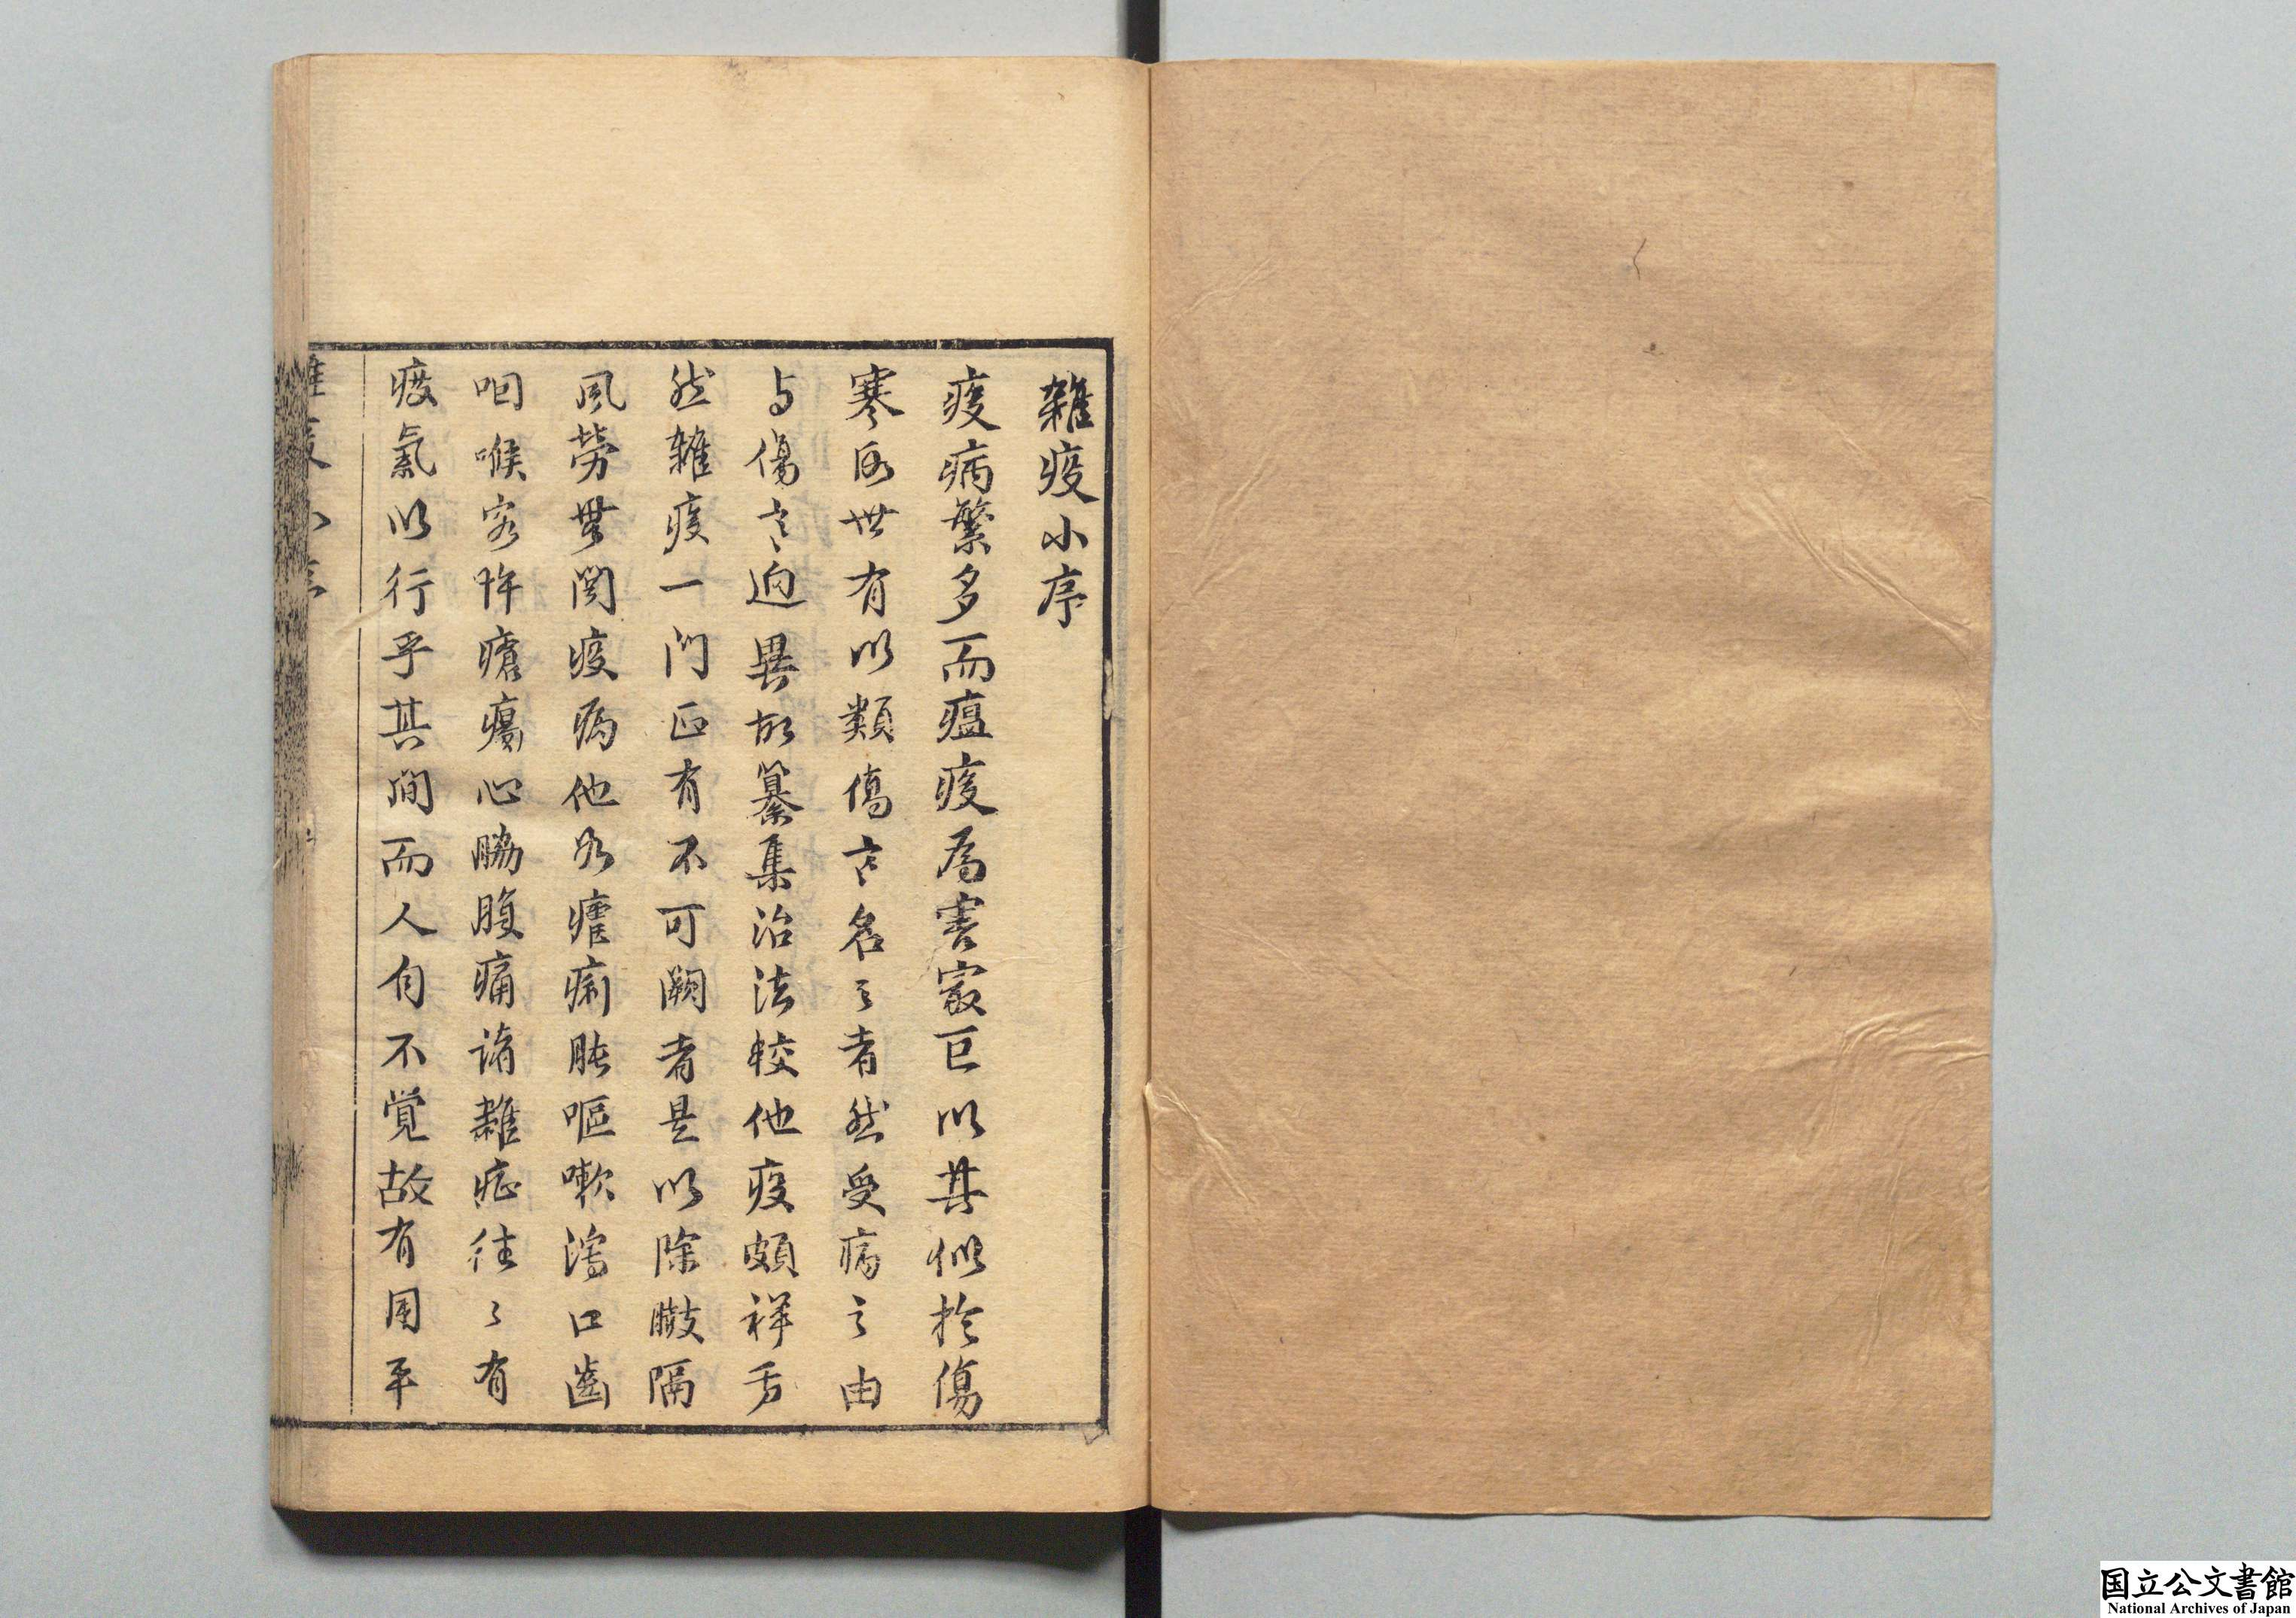 雜疫小序
疫病繁多而瘟疫為害寂已以其似於傷
寒故世有以類傷寒名之者然受病之由
与傷寒迥異故纂集治法較他疫頗祥焉
然雜疫一門正有不可闕者是以除臌隔
風勞無関疫病他如瘧痢脹嘔嗽瀉口齒
咽喉痧疹瘡瘍心脇腹痛諸雜症往〻有
疫氣以行乎其间而人自不覚故有用平
国立公文書館
National Archives of Japan